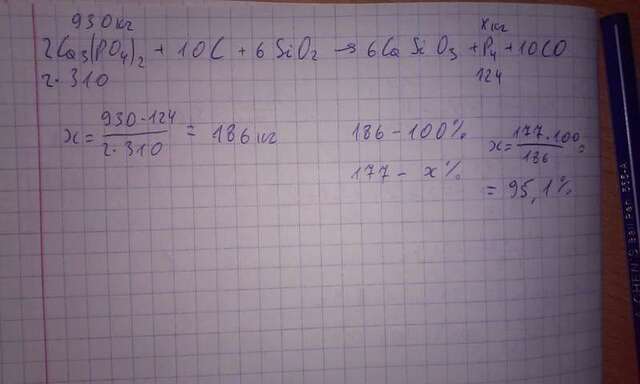 930 кг
x кг
2Ca3(PO4)2 + 10C + 6SiO2 → 6CaSiO3 + P4 + 10CO
2·310
124
x = 930·124 / 2·310 = 186 кг
186 - 100%
177 - x%
x = 177·100 / 186 =
= 95,1%